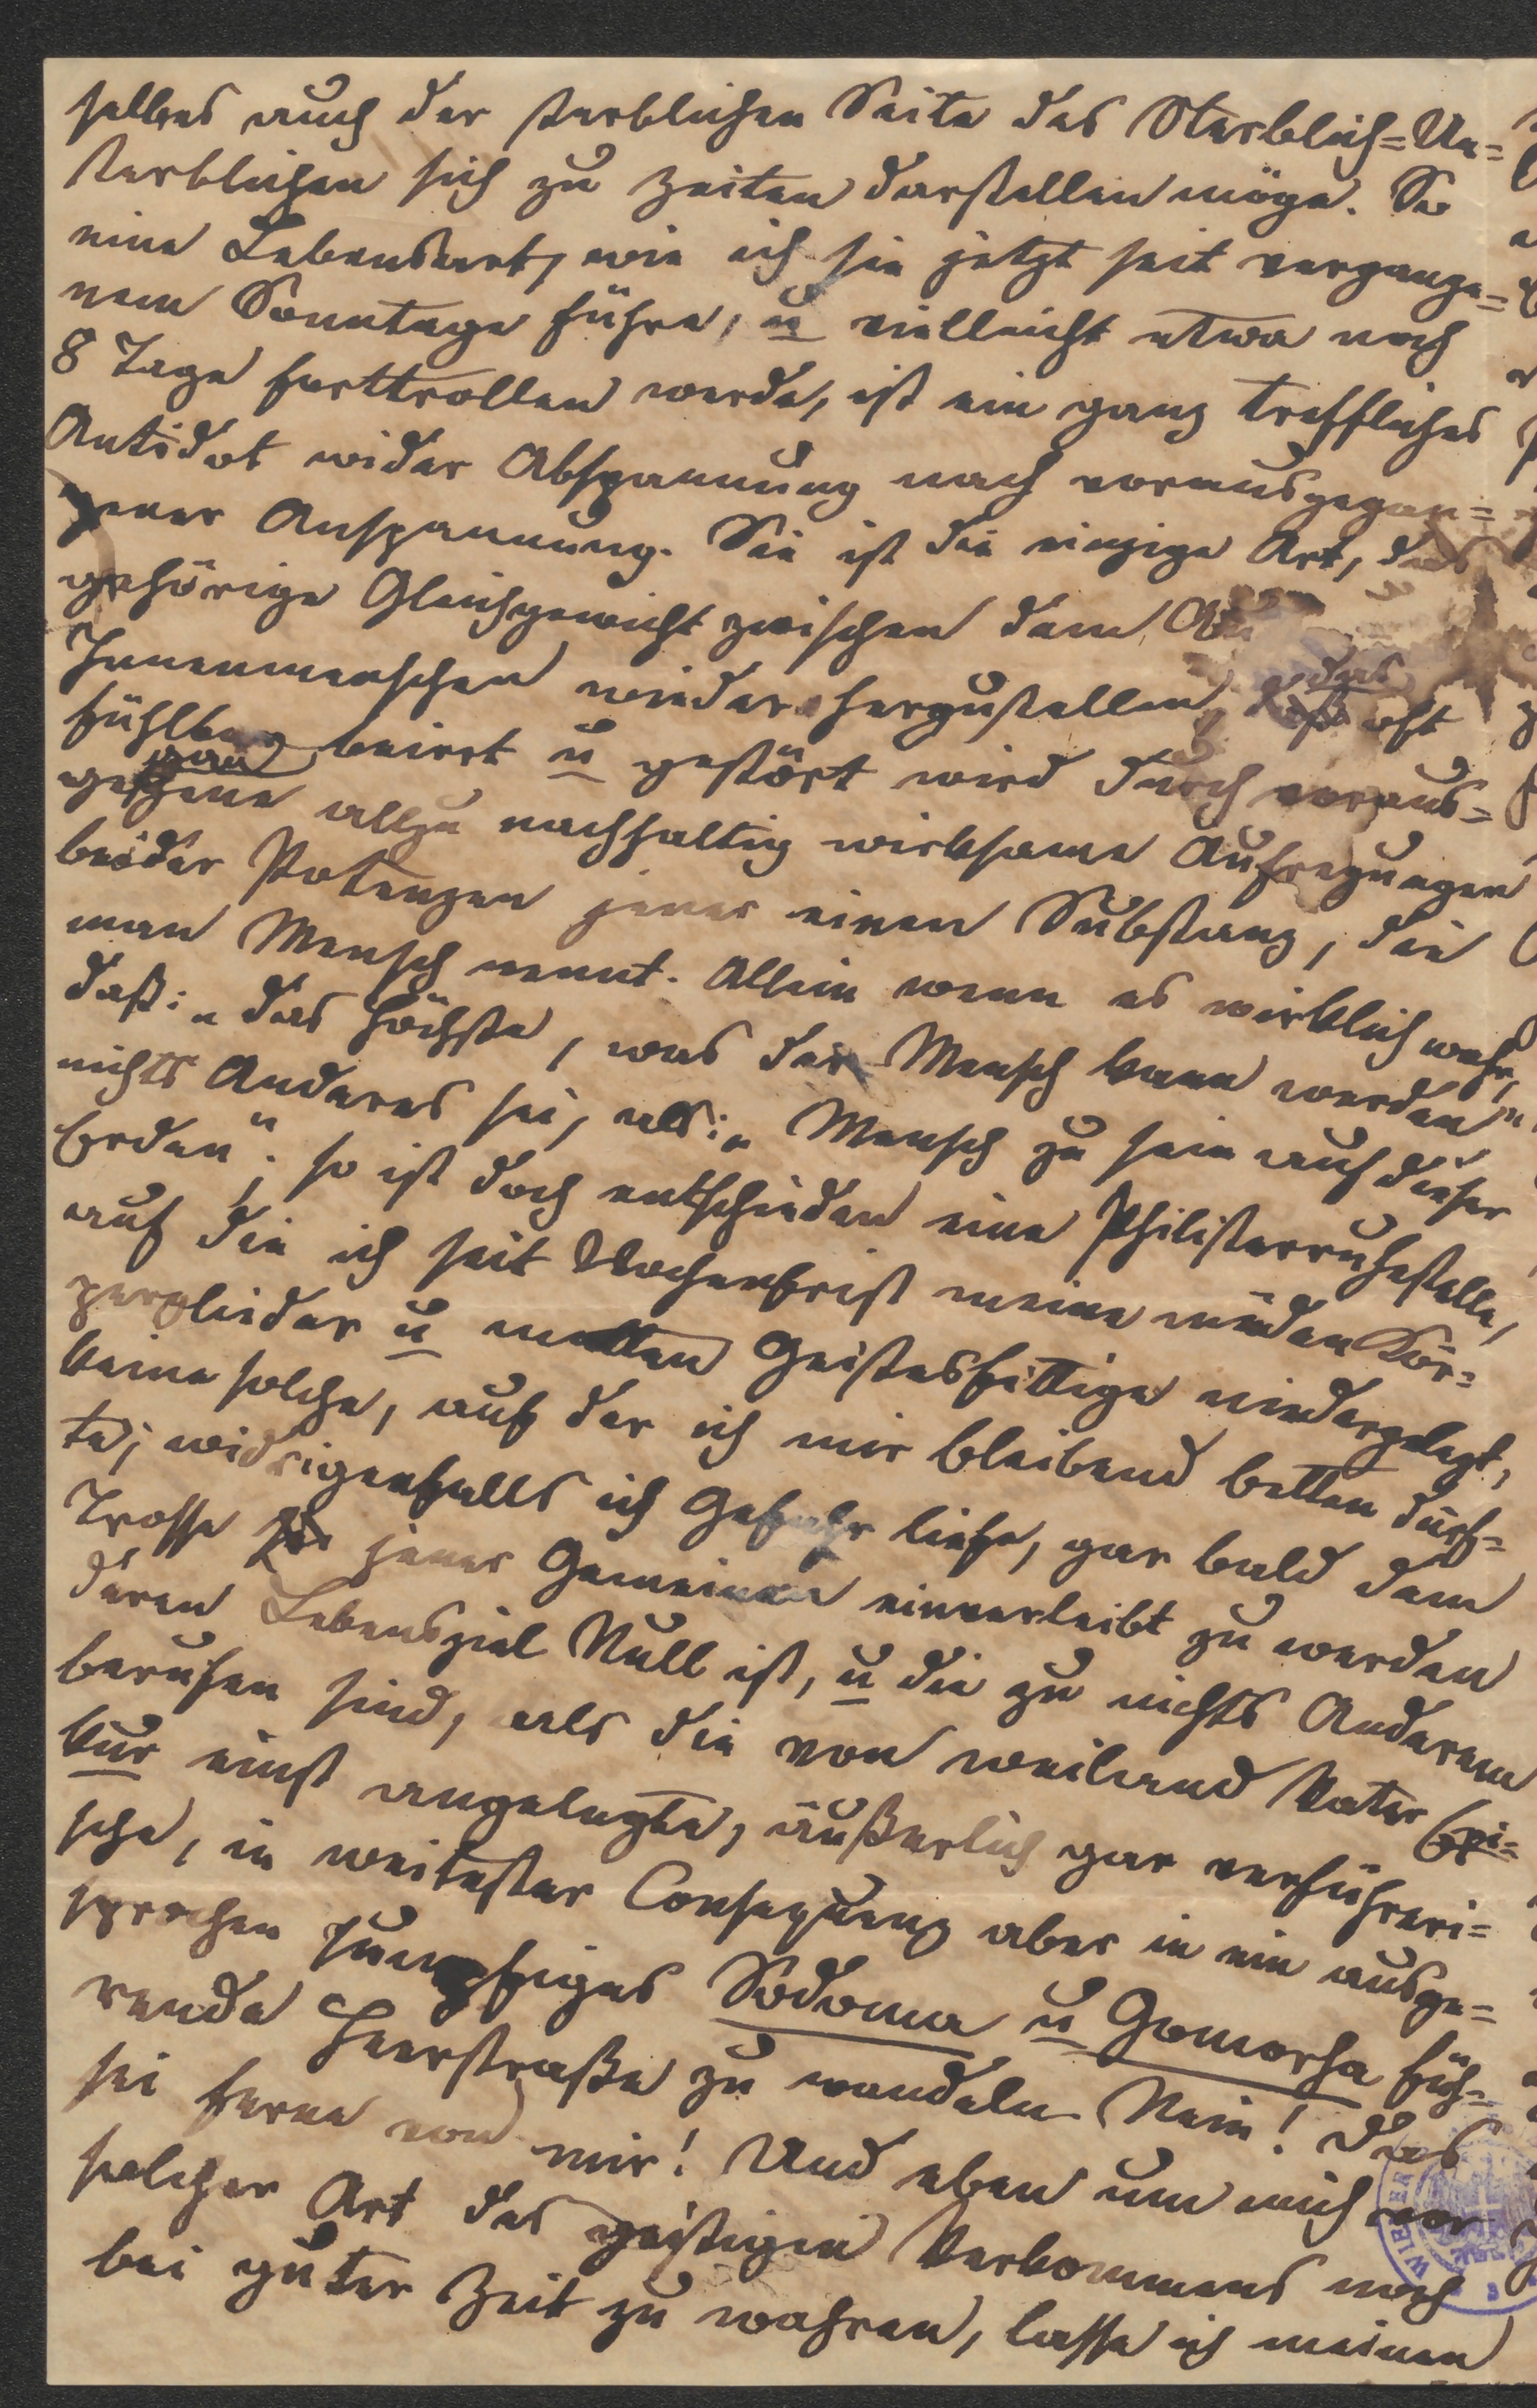 selbes auch der sterblichen Seite des Sterblich=Un=
sterblichen sich zu Zeiten darstellen möge. So
eine Lebensart, wie ich sie jetzt seit vergange=
nem Sonntage führe, u vielleicht etwa noch
8 Tage forttrollen werde, ist ein ganz treffliches
Antidot wider Abspannung nach vorausgegan=
gener Anspannung. Sie ist die einzige Art, das
gehörige Gleichgewicht zwischen dem
Innenmenschen wieder herzustellen, das oft
fühlbar beirrt u gestört wird durch voraus=
gegangene allzu nachhaltig wirksame Aufregungen
beider Potenzen jener einen Substanz, die
man Mensch nennt. Allein wenn es wirklich wahr,
daß: „das Höchste, was der Mensch kann werden"
nichts Anderes sei, als: „Mensch zu sein auf dieser
Erden"; so ist doch entschieden eine Philisterruhestelle,
auf die ich seit Wochenfrist meine müden Kör=
perglieder u matten Geistesfittige niedergelegt,
keine solche, auf der ich mir bleibend betten dürf=
te; widrigenfalls ich Gefahr liefe, gar bald dem
Trosse jener Gemeinen einverleibt zu werden
deren Lebensziel Null ist, u die zu nichts Anderem
berufen sind, als die von weiland Vater Epi=
kur einst angelegte, äußerlich gar verführeri=
sche, in weitester Consequenz aber in ein ausge=
sprochen sumpfiges Sodoma u Gomorha füh=
rende Heerstraße zu wandeln. Nein! Das
sei ferne von mir! Und eben um mich vor
solcher Art des geistigen Verkommens noch
bei guter Zeit zu wahren, lasse ich meinen
WIENER